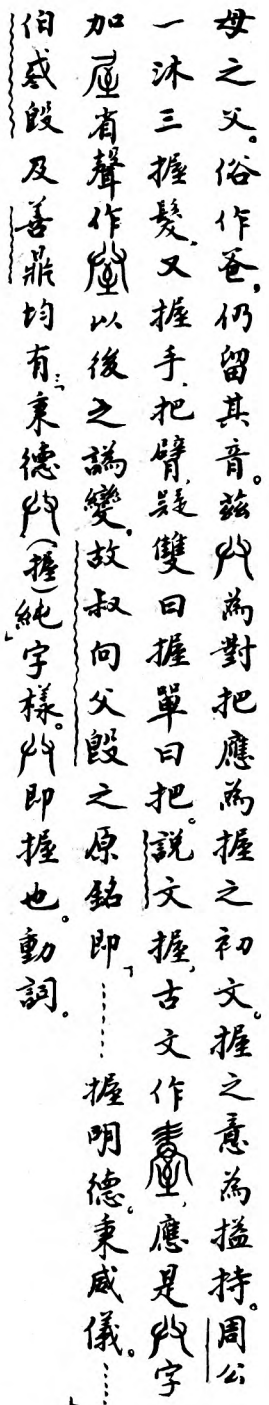 母之父。俗作爸,仍留其音。茲𠬞為對把應為握之初文。握之意為搤持。周公
一沐三握髮,又握手、把臂,疑雙曰握單曰把。說文握,古文作𡔑,應是𠬞字
加屋省聲作𡊙以後之譌變,故叔向父𣪘之原銘即「……握明德。秉威儀。……
伯𢦚𣪘及善鼎均有「秉德𠬞(握)純」字樣。𠬞即握也。動詞。